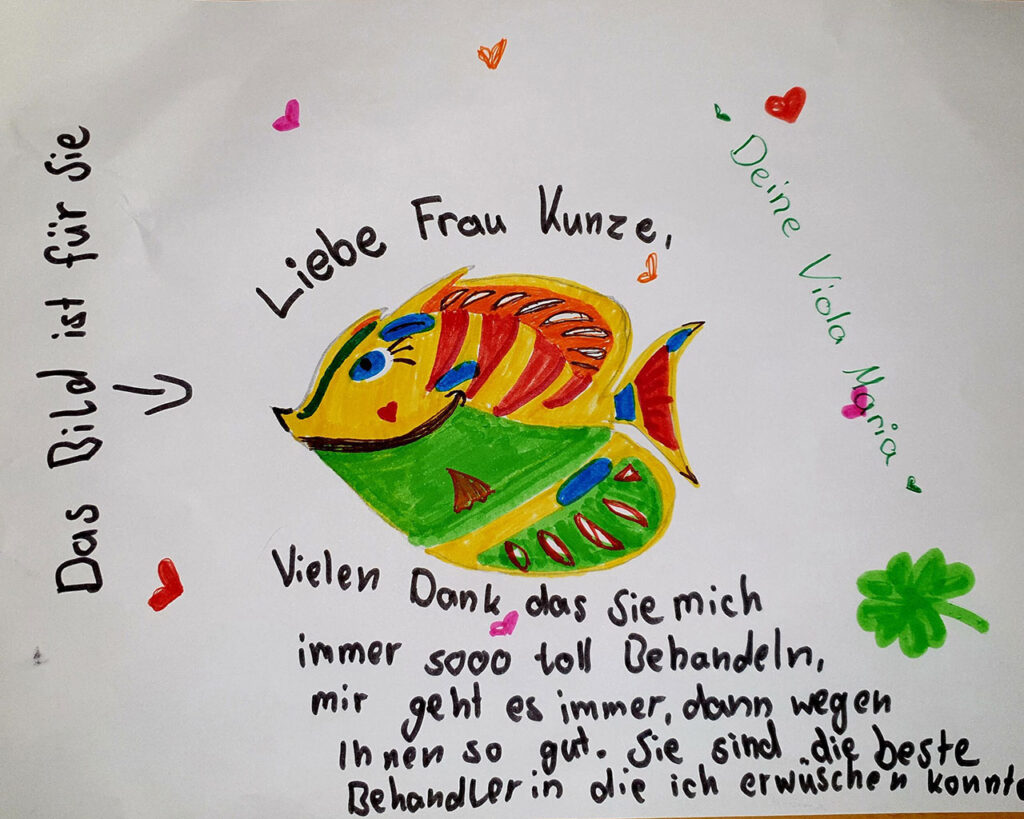 Das Bild ist für Sie
Liebe Frau Kunze,
Vielen Dank das Sie mich
immer sooo toll Behandeln,
mir geht es immer, dann wegen
Ihnen so gut. Sie sind die beste
Behandlerin die ich erwüschen konnte
Deine Viola Maria